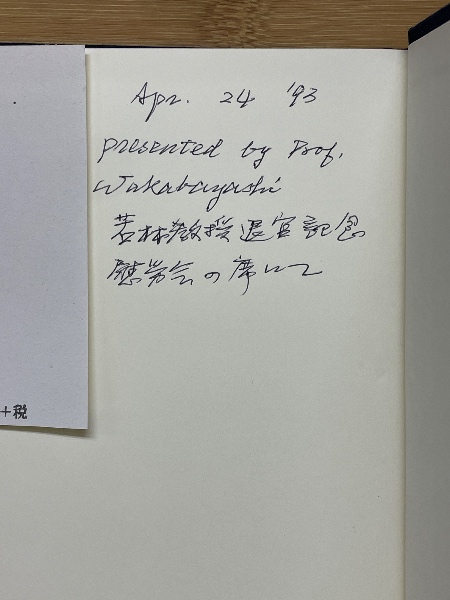 Apr. 24 '93
presented by Prof.
Wakabayashi
若林教授退官記念
慰労会の席にて
+税